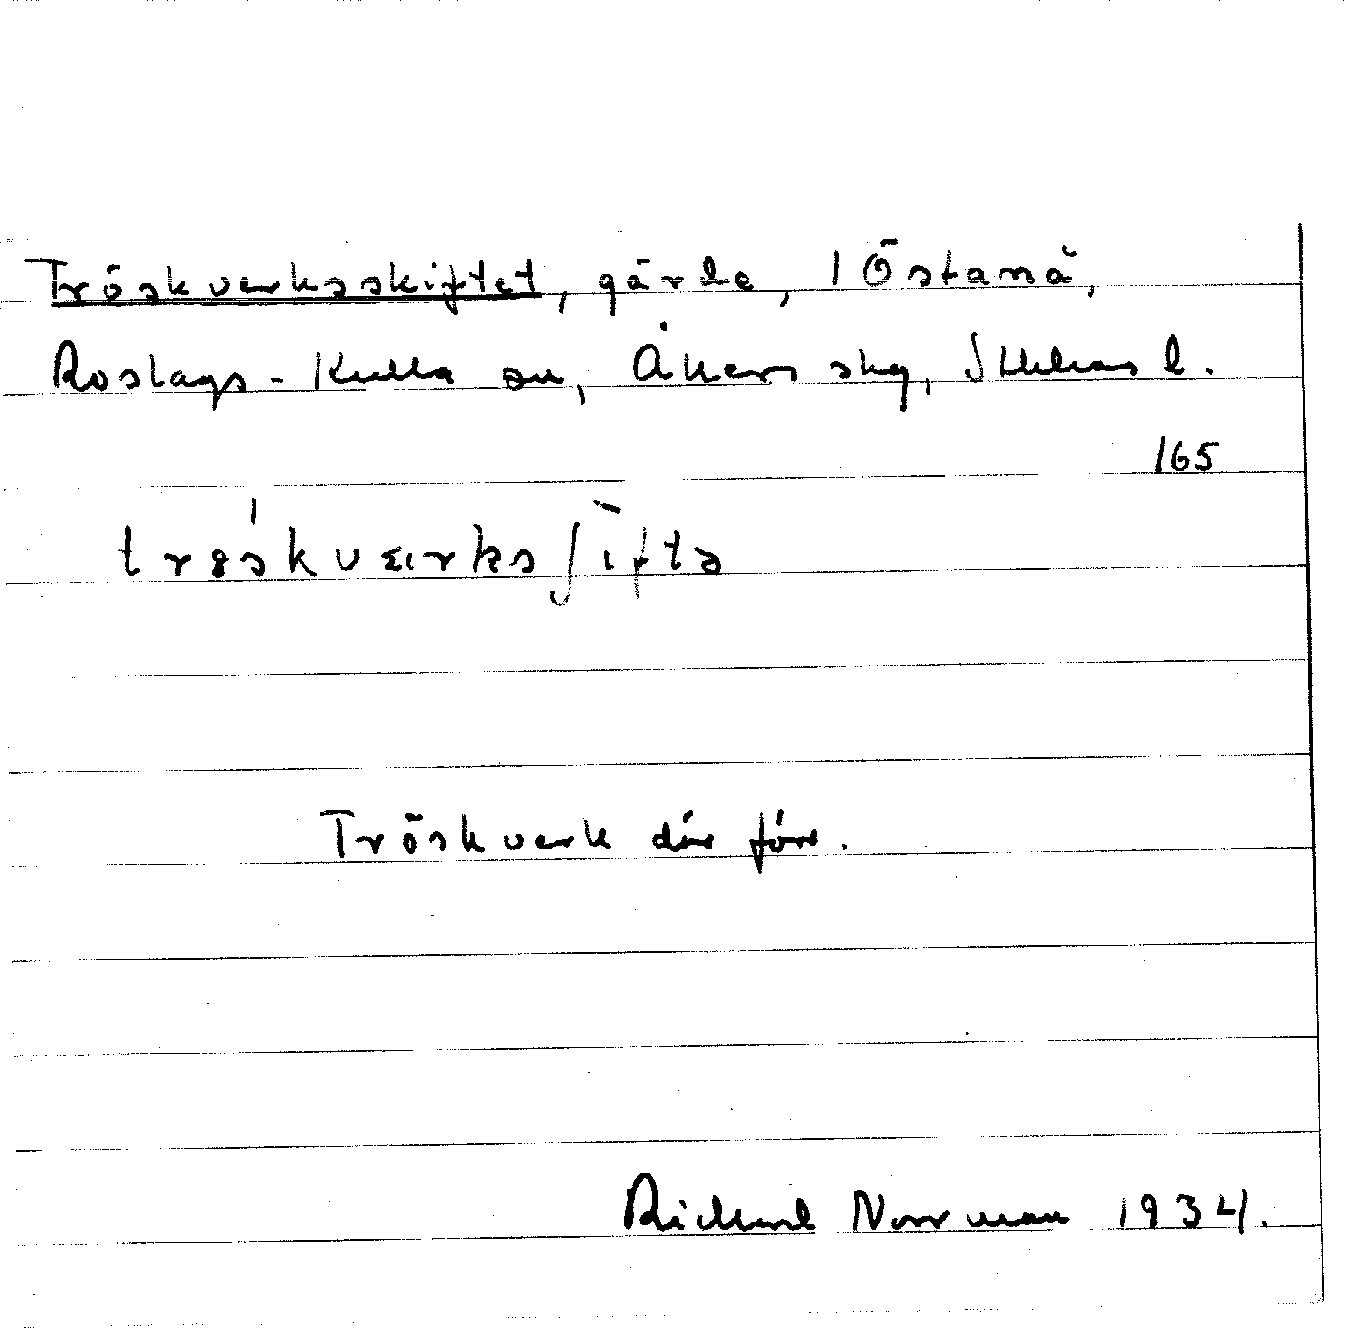 Tröskverksskiftet, gärde, 1 Östanå,
Roslags-Kulla sn, Åkers skg, Sthlms l.
165
Tröskverk där förr.
Rickard Norrman 1934.